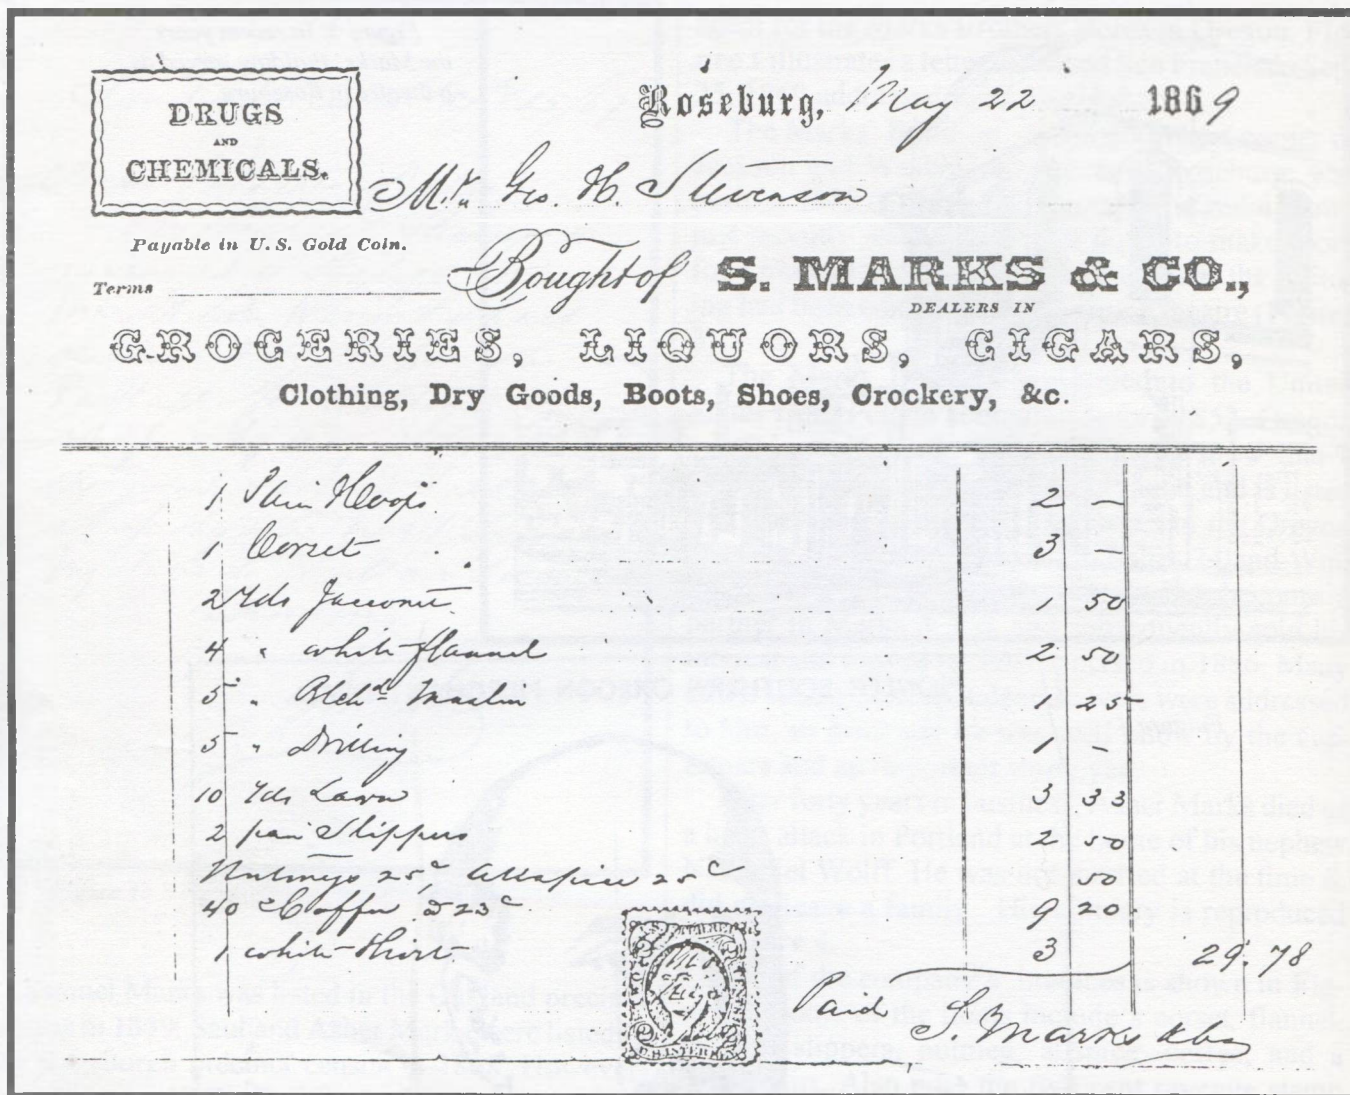 DRUGS
AND
CHEMICALS.
Roseburg, May 22 1869
Mr. Geo. H. Stevenson
Payable in U.S. Gold Coin.
Terms
Bought of S. MARKS & CO.,
DEALERS IN
GROCERIES, LIQUORS, CIGARS,
Clothing, Dry Goods, Boots, Shoes, Crockery, &c.
1 Hoops 2 —
1 Corset 3 —
2 Yds Jacconet 1 50
4 " white flannel 2 50
5 " Blchd Muslin 1 25
5 " Drilling 1 —
10 Yds Lawn 3 33
2 pair Slippers 2 50
Nutmegs 25c, Allspice 25c 50
40 Coffee @ 23c 9 20
1 white Shirt 3 29.78
Paid S Marks & Co